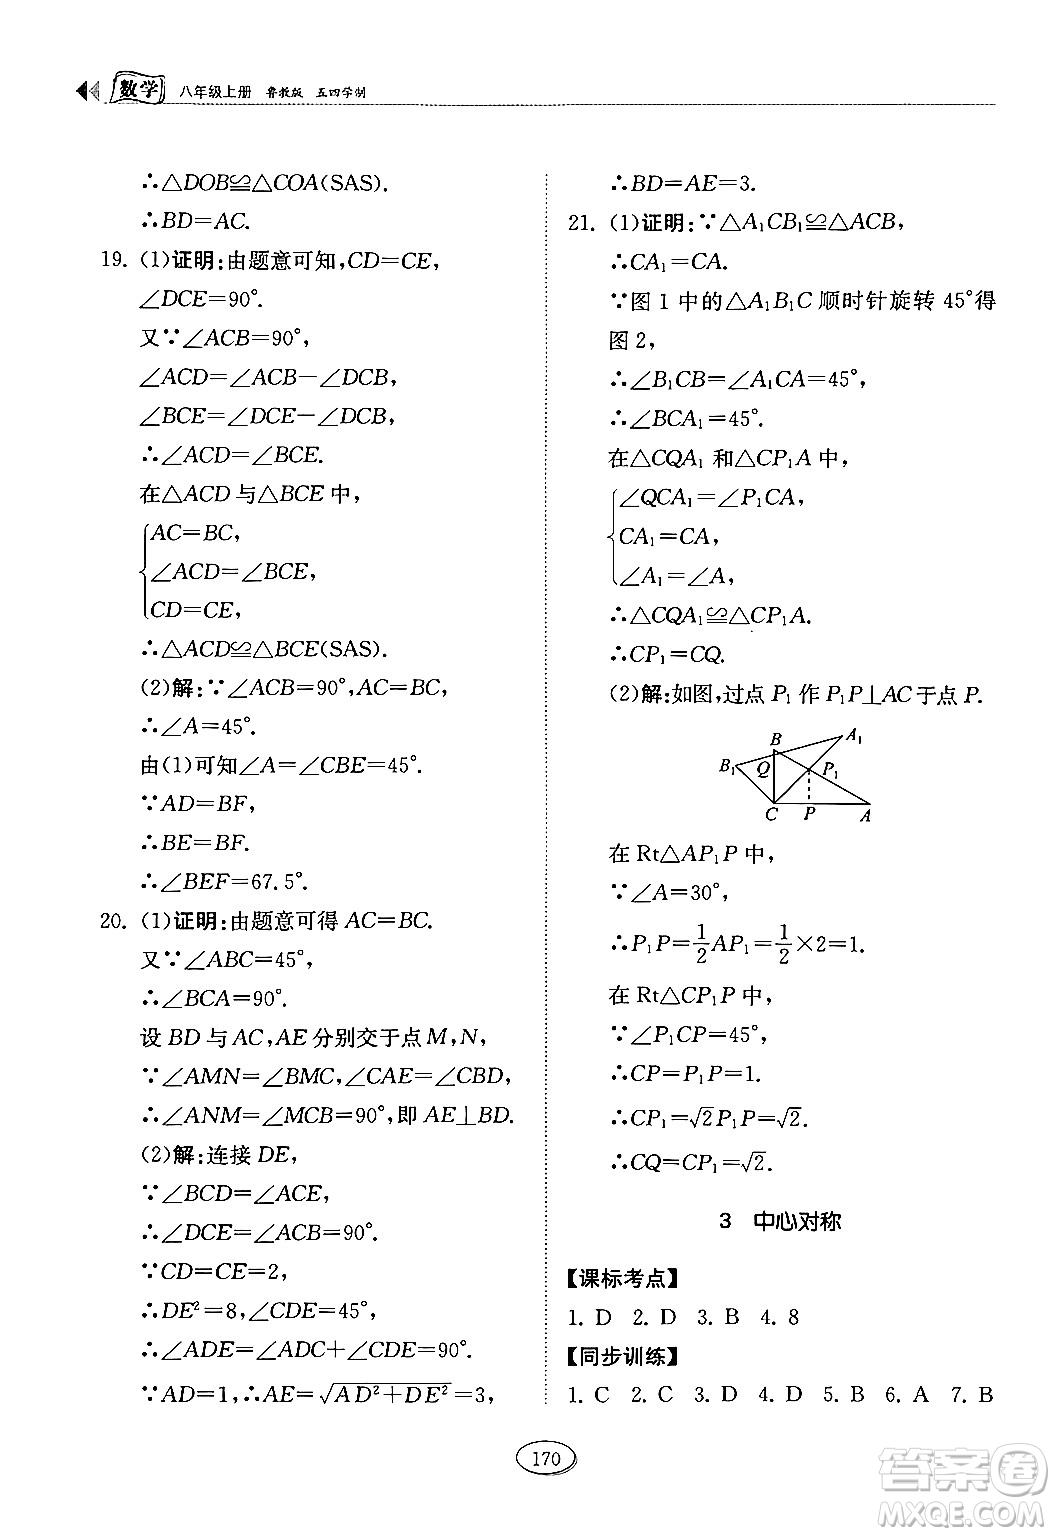 数学 八年级上册 鲁教版 五四学制
∴△DOB≌△COA(SAS).
∴BD=AC.
19. (1)证明:由题意可知,CD=CE,
∠DCE=90°.
又∵∠ACB=90°,
∠ACD=∠ACB-∠DCB,
∠BCE=∠DCE-∠DCB,
∴∠ACD=∠BCE.
在△ACD 与△BCE 中,
AC=BC,
∠ACD=∠BCE,
CD=CE,
∴△ACD≌△BCE(SAS).
(2)解:∵∠ACB=90°,AC=BC,
∴∠A=45°.
由(1)可知∠A=∠CBE=45°.
∵AD=BF,
∴BE=BF.
∴∠BEF=67.5°.
20. (1)证明:由题意可得 AC=BC.
又∵∠ABC=45°,
∴∠BCA=90°.
设 BD 与 AC,AE 分别交于点 M,N,
∵∠AMN=∠BMC,∠CAE=∠CBD,
∴∠ANM=∠MCB=90°,即 AE⊥BD.
(2)解:连接 DE,
∵∠BCD=∠ACE,
∴∠DCE=∠ACB=90°.
∵CD=CE=2,
∴DE²=8,∠CDE=45°.
∴∠ADE=∠ADC+∠CDE=90°.
∵AD=1,∴AE=√AD²+DE²=3,
∴BD=AE=3.
21. (1)证明:∵△A₁CB₁≌△ACB,
∴CA₁=CA.
∵图 1 中的△A₁B₁C 顺时针旋转 45°得
图 2,
∴∠B₁CB=∠A₁CA=45°,
∴∠BCA₁=45°.
在△CQA₁ 和△CP₁A 中,
∠QCA₁=∠P₁CA,
CA₁=CA,
∠A₁=∠A,
∴△CQA₁≌△CP₁A.
∴CP₁=CQ.
(2)解:如图,过点 P₁ 作 P₁P⊥AC于点 P.
B A₁
B₁ Q P₁
C P A
在 Rt△AP₁P 中,
∵∠A=30°,
∴P₁P=1/2AP₁=1/2×2=1.
在 Rt△CP₁P 中,
∵∠P₁CP=45°,
∴CP=P₁P=1.
∴CP₁=√2P₁P=√2.
∴CQ=CP₁=√2.
3 中心对称
【课标考点】
1. D 2. D 3. B 4. 8
【同步训练】
1. C 2. C 3. D 4. D 5. B 6. A 7. B
170
答案圈
MXQE.COM